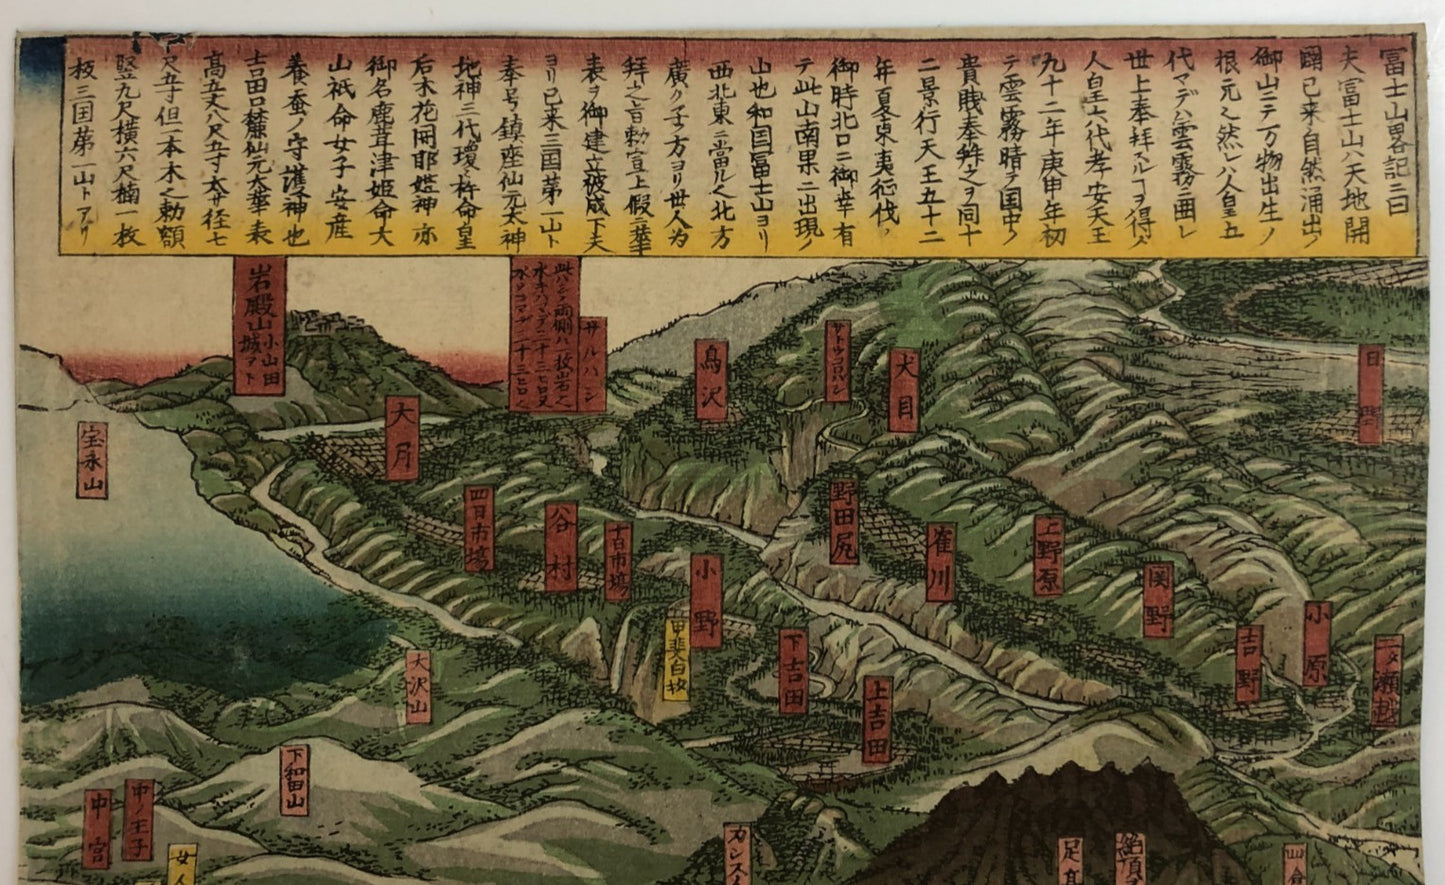 冨士山畧記ニ曰
夫冨士山ハ天地開
闢已来自然涌出ノ
御山ニテ万物出生ノ
根元也然レハ人皇五
代マデハ雲霧ニ囲レ
世上奉拜スルヿヲ得バ
人皇六代孝安天王
九十二年庚申年初
テ雲霧晴テ国中ノ
貴賎奉拜之ヲ同十
二景行天王五十二
年夏東夷征伐ノ
御時北口ニ御幸有
テ此山南果ニ出現ノ
山也和国冨士山ヨリ
西北東ニ當ル也北方
廣クメ方ヨリ世人為
拜之旨勅宣上假ニ華
表ヲ御建立被成下夫
ヨリ已来三国第一山ト
奉号鎮座仙元大神
地神三代瓊々杵命皇
后木花開耶姫神亦
御名鹿葺津姫命大
山祇命女子安産
養蚕ノ守護神也
吉田口麓仙元大華表
高五丈八尺五寸太サ径七
尺五寸但一本木也勅額
竪九尺横六尺楠一枚
板三国第一山トアリ
岩殿山
小山田
城アト
サルハシ
此ハシノ両側ハ一枚岩也
水キハマデ二十三ヒロ又
水ソコマデ二十三ヒロ也
鳥沢
犬目
日野
大月
宝永山
四日市場
谷村
十日市場
小野
野田尻
崔川
上野原
関野
吉野
小原
甲斐白抜
下吉田
上吉田
大沢山
下和田山
中ノ王子
中宮
女人
足高
絶頂